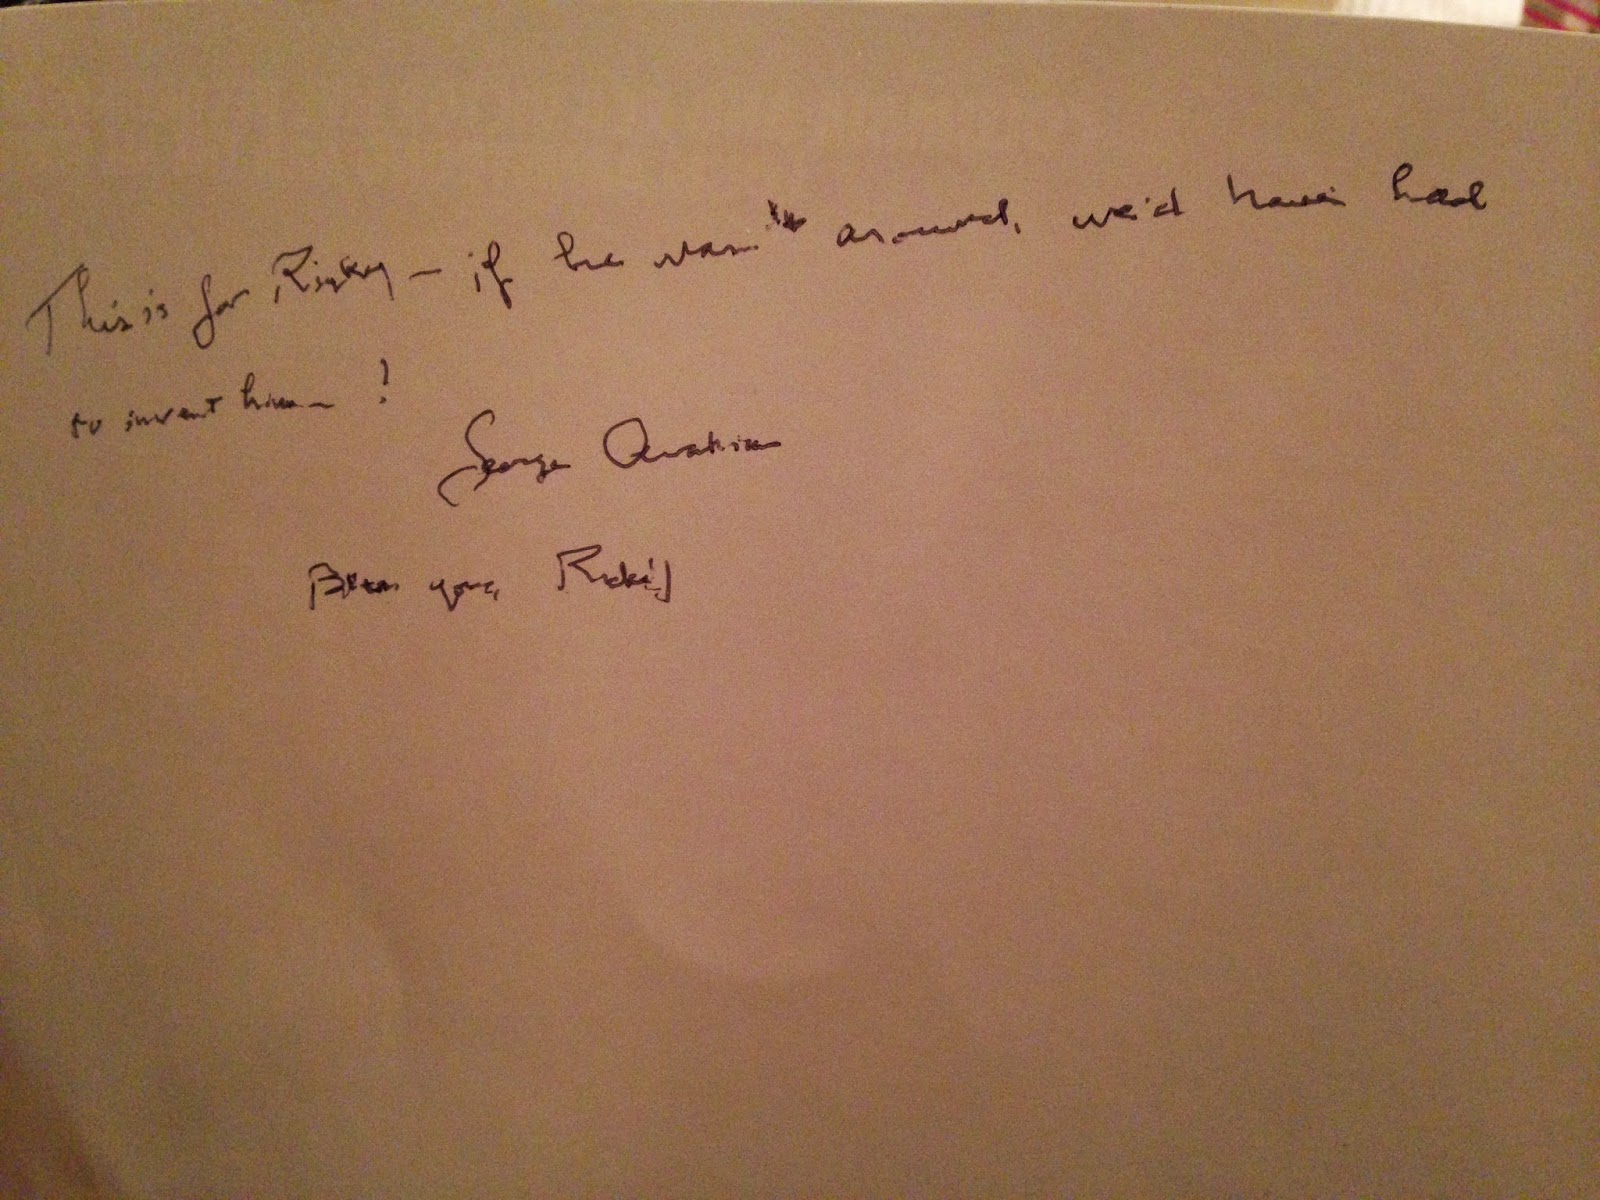 This is for Ricky – if he wasn't around, we'd have had
to invent him!
George Avakian
Bless you, Ricky!